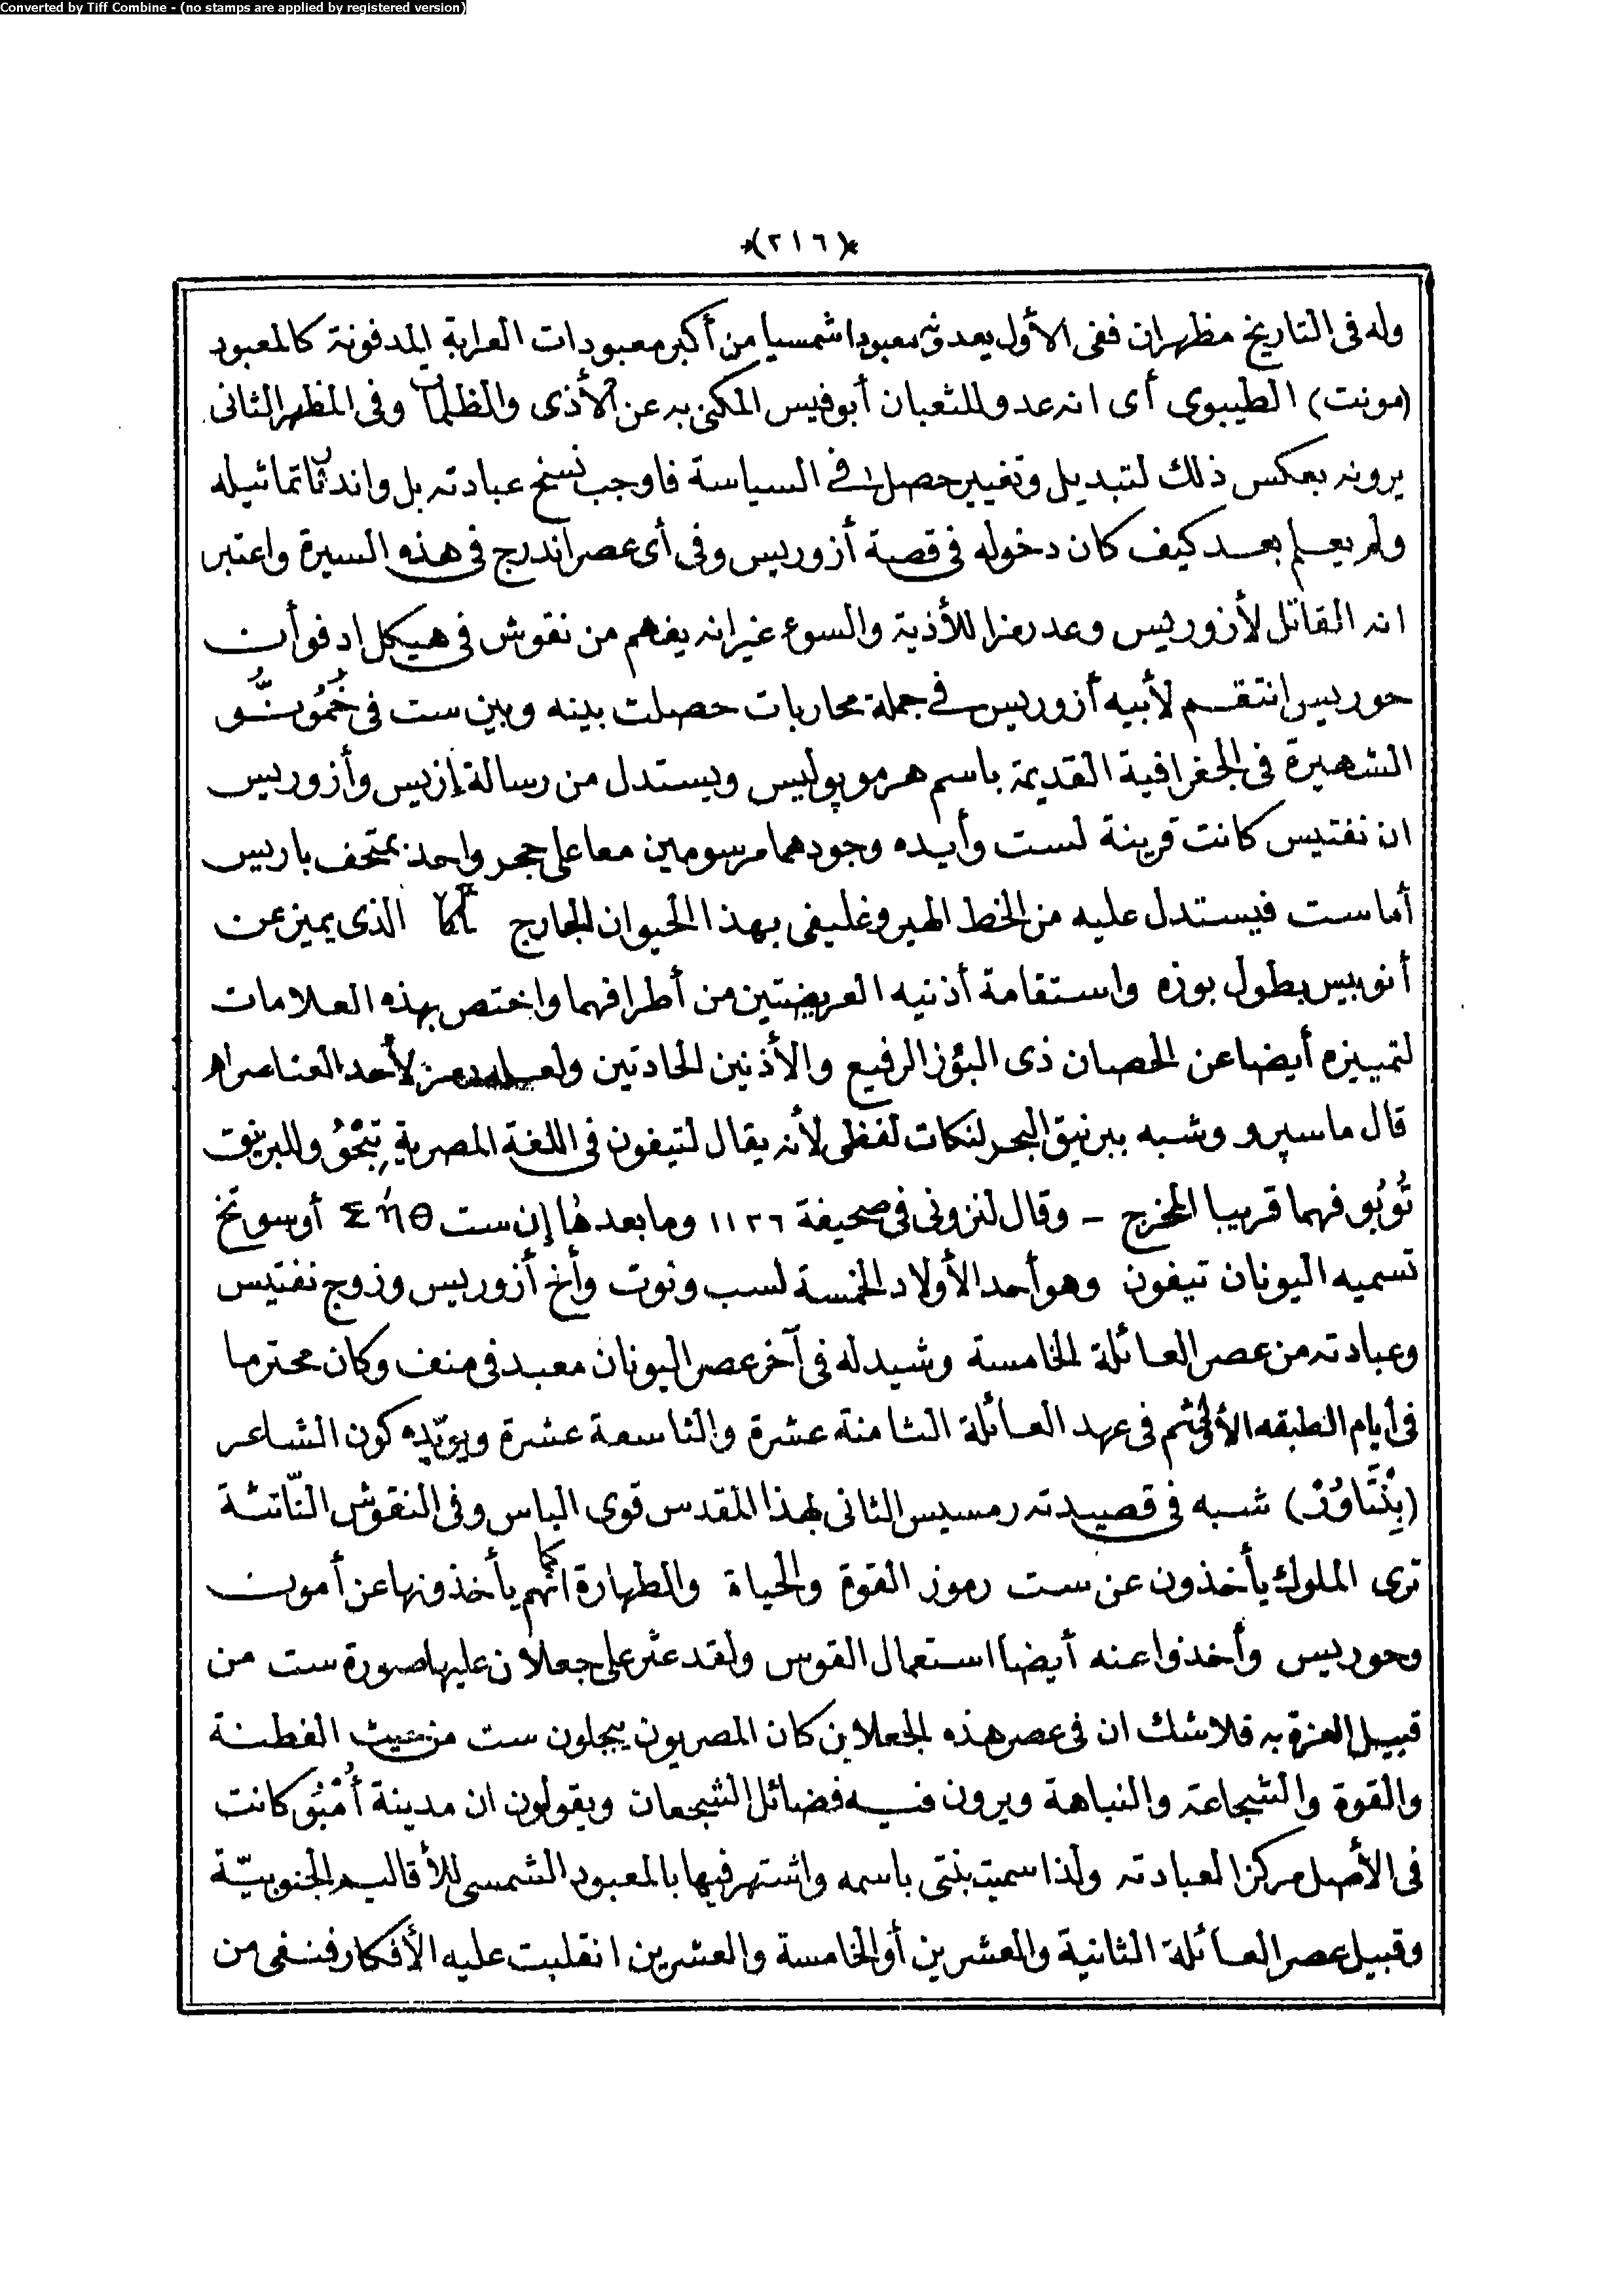 Converted by Tiff Combine - (no stamps are applied by registered version)
*(٢١٦)*
وله فى التاريخ مظهران ففى الأول يعدونه معبودا شمسيا من أكبر معبودات العرابة المدفونة كالمعبود
(مونت) الطيبوى أى انه عدو للثعبان أبوفيس المكنى به عن الأذى والظلمات وفى المظهر الثانى
يرونه بعكس ذلك لتبديل وتغيير حصل فى السياسة فاوجب نسخ عبادته بل واندثار تماثيله
ولم يعلم بعد كيف كان دخوله فى قصة أزوريس وفى أى عصر اندرج فى هذه السيرة واعتبر
انه القاتل لأزوريس وعد رمزا للأذية والسوء غير انه يفهم من نقوش فى هيكل ادفو أن
حوريس انتقم لأبيه أزوريس فى جملة محاربات حصلت بينه وبين ست فى خمونو
الشهيرة فى الجغرافية القديمة باسم هرموپوليس ويستدل من رسالة إزيس وأزوريس
ان نفتيس كانت قرينة لست وأيده وجودهما مرسومين معا على حجر واحد بمتحف باريس
أما ست فيستدل عليه من الخط الهيروغليفى بهذا الحيوان الجارح الذى يميز عن
أنوبيس بطول بوزه واستقامة أذنيه العريضتين من أطرافهما واختص بهذه العلامات
لتمييزه أيضا عن الحصان ذى البؤز الرفيع والأذنين الحادتين ولعله رمز لأحد العناصر اه
قال ماسپرو وشبه ببرنيق البحر لنكات لفظى لأنه يقال لتيفون فى اللغة المصرية تبخو وللبرنيق
توبو فهما قريبا المخرج - وقال لنزونى فى صحيفة ١١٢٦ وما بعدها إن ست ΣηΘ أو سوتخ
تسميه اليونان تيفون وهو أحد الأولاد الخمسة لسب ونوت وأخ أزوريس وزوج نفتيس
وعبادته من عصر العائلة الخامسة وشيد له فى آخر عصر اليونان معبد فى منف وكان محترما
فى أيام الطبقه الأولى ثم فى عهد العائلة الثامنة عشرة والتاسعة عشرة ويؤيده كون الشاعر
(بِنْتَاوُرْ) شبه فى قصيدته رمسيس الثانى لهذا المقدس قوى الباس وفى النقوش الناتئة
ترى الملوك يأخذون عن ست رموز القوة والحياة والطهارة كما انهم يأخذونها عن أمون
وحوريس وأخذوا عنه أيضا استعمال القوس ولقد عثر على جعلان عليها صورة ست من
قبيل العزة به فلا شك ان فى عصر هذه الجعلان كان المصريون يبجلون ست من حيث الفطنة
والقوة والشجاعة والنباهة ويرون فيه فضائل الشجعان ويقولون ان مدينة أمبو كانت
فى الأصل مركزا لعبادته ولذا سميت بنتى باسمه واشتهر فيها بالمعبود الشمسى للأقاليم الجنوبيّة
وقبيل عصر العائلة الثانية والعشرين أو الخامسة والعشرين انقلبت عليه الأفكار فنفى من